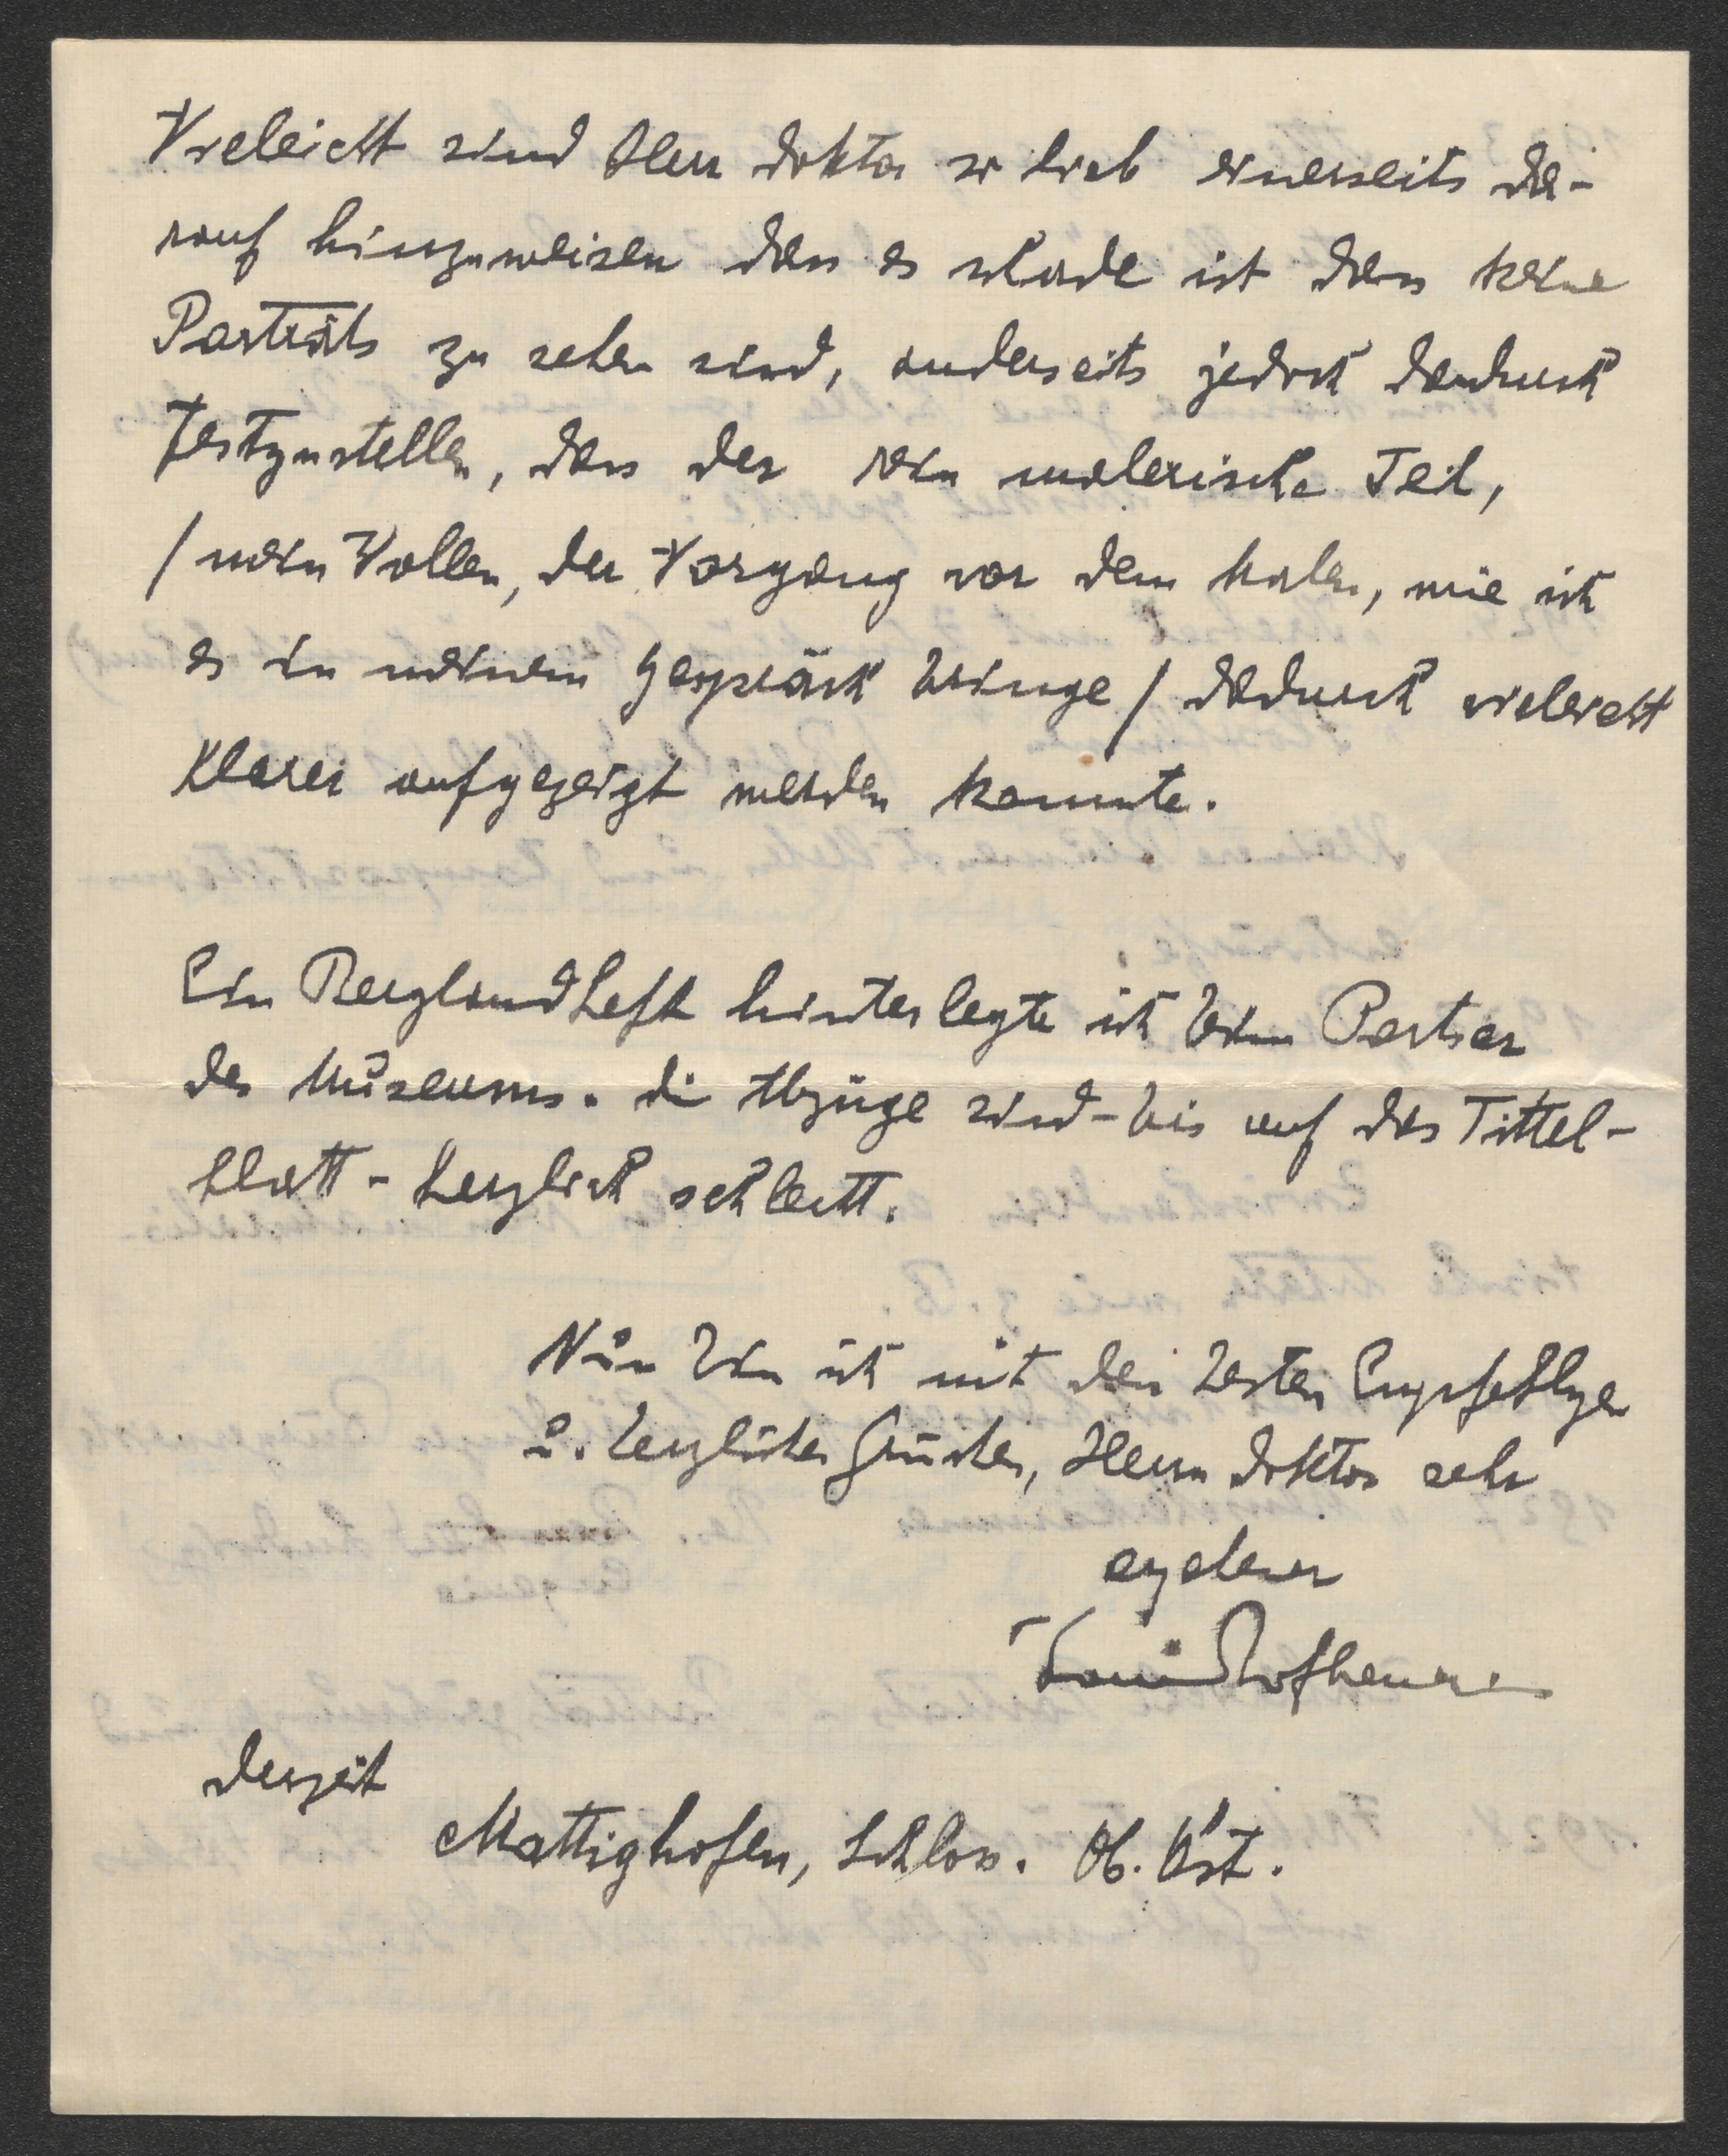 Vieleicht sind Herr Doktor so lieb einerseits da-
rauf hinzuweisen dass es schade ist dass keine
Porträts zu sehen sind, anderseits jedoch dadurch
festzustellen, dass der rein malerische Teil,
/ mein Wollen, der Vorgang vor dem Malen, wie ich
es in meinem Gespräch bringe / dadurch vieleicht
klarer aufgezeigt werden konnte.
Ein Berglandheft hinterlegte ich beim Portier
des Museums. Die Abzüge sind - bis auf das Tittel-
blatt - herzlich schlecht.
Nun bin ich mit den besten Empfehlgen
u. herzlichen Grüssen, Herrn Doktor sehr
ergebener
Toni Kirchmayr
derzeit
Mattighofen, Schloss. Ob. Öst.